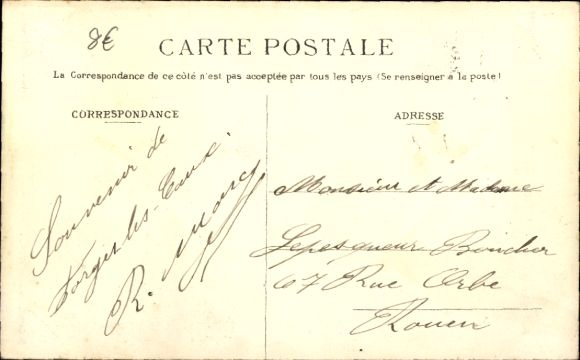 8€
CARTE POSTALE
La Correspondance de ce côté n'est pas acceptée par tous les pays (Se renseigner à la poste)
CORRESPONDANCE
Souvenir de
Forges-les-Eaux.
R.
ADRESSE
Monsieur et Madame
Lepesqueur Boucher
67 Rue Orbe
Rouen